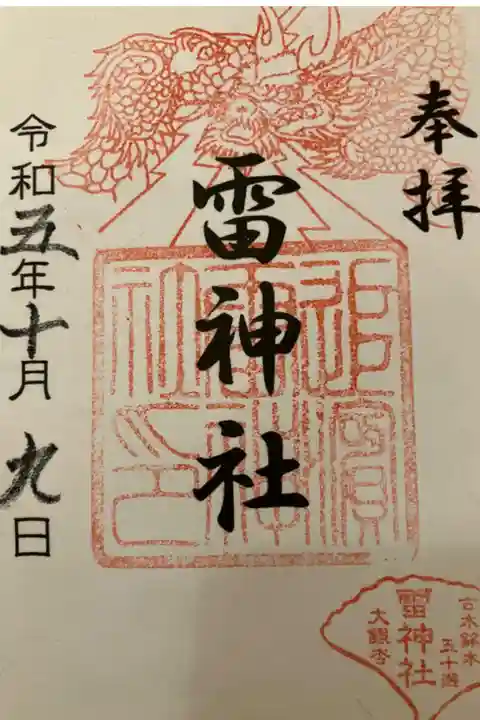 奉拝
雷神社
追濱
雷神
社印
令和五年十月九日
古木銘木
五十選
雷神社
大銀杏